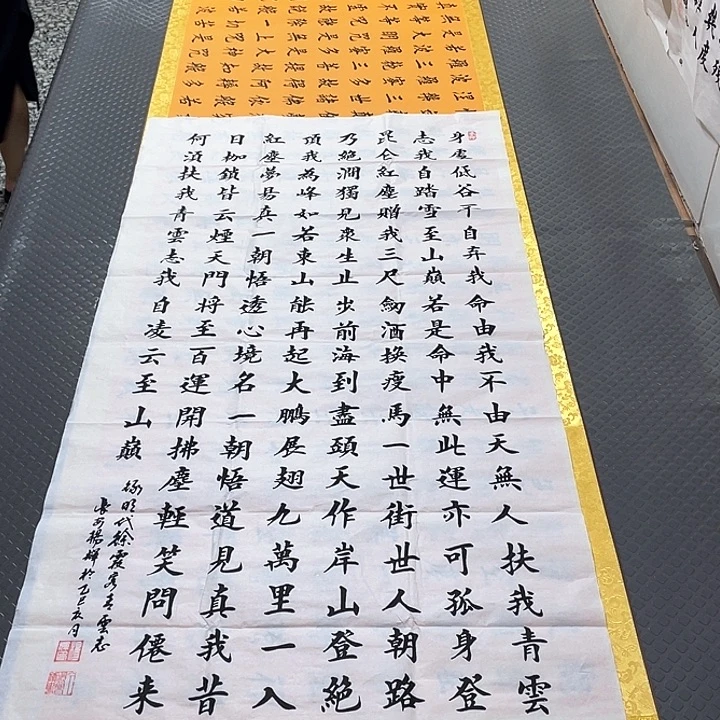 身處低谷不自弃我命由我不由天無人扶我青雲
志我自踏雪至山巔若是命中無此運亦可孤身登
昆仑紅塵贈我三尺劍酒換瘦馬一世街世人朝路
乃絕澗獨見衆生止步前海到盡頭天作岸山登絕
頂我為峰如若東山能再起大鵬展翅九萬里一入
紅塵夢易真一朝悟透心境名一朝悟道見真我昔
日枷鎖皆云煙天門将至百運開拂塵輕笑問僊来
何須扶我青雲志我自凌云至山巔
錄明代徐霞客青雲志
長安楊輝於乙巳夏月